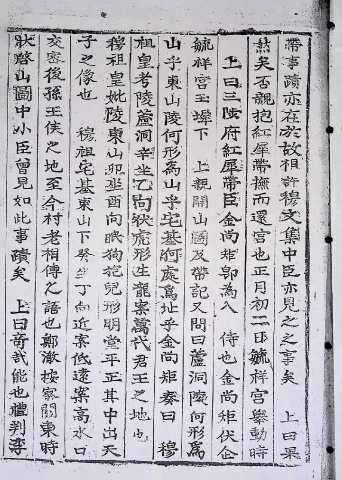 帶事蹟亦在於故相許穆文集中臣亦見之之事矣 上曰果
然矣否親抱紅犀帶撫而還宮也正月初二日毓祥宮擧動時
上曰三陟府紅犀帶臣金尚矩卽為入 侍也金尚矩伏企
毓祥宮玉墀下 上親開山圖及帶記又問曰蘆洞陵何形爲
山乎東山陵何形為山乎宅基何處爲址乎金尚矩奏曰 穆
祖皇考陵蘆洞辛坐乙向伏虎形生龍案萬代君王之地也
穆祖皇妣陵東山卯坐酉向眠狗抱兒形明堂平正其中出天
子之像也 穆祖宅基東山下癸坐丁向近案低遠案高水口
交密後孫王侯之地至今村老相傳之語也鄭澈按察關東時
狀啓山圖中小臣曾見如此事蹟矣 上曰奇哉能也禮判李